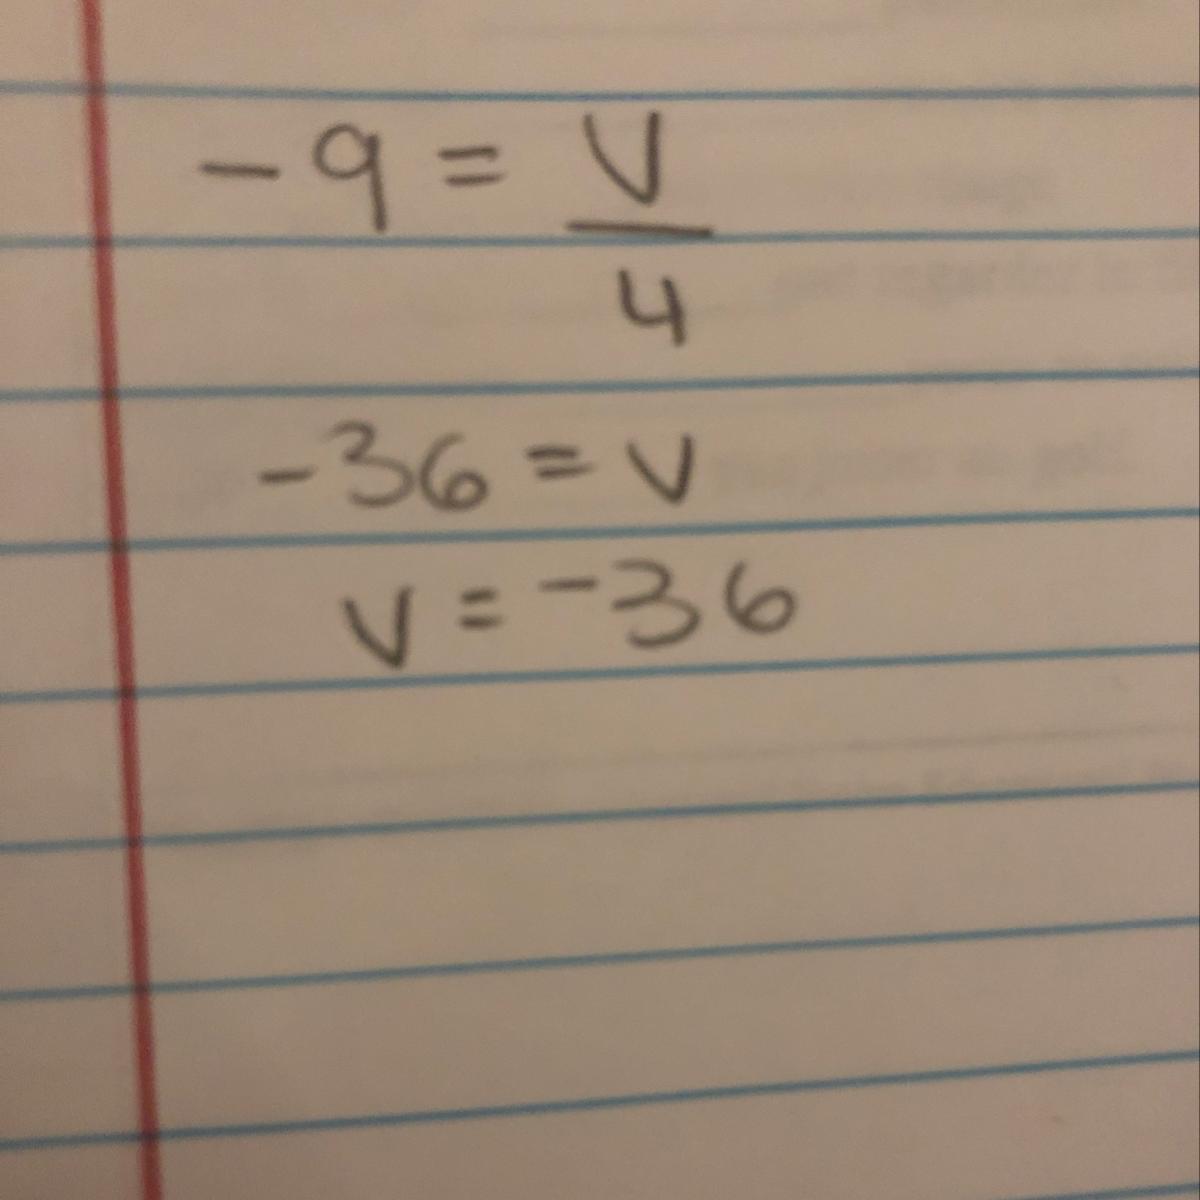 -9 = V
4
-36 = v
v = -36